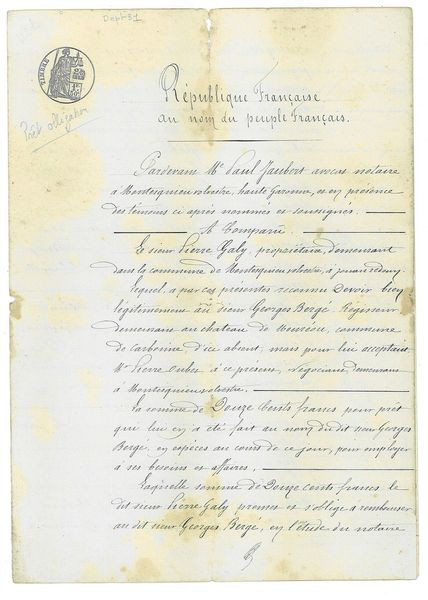 Dept 31
TIMBRE
Prêt obligation
République Française
au nom du peuple Français.
Pardevant Me Paul Jaubert avocat notaire
à Montesquieu volvestre, haute Garonne, et en présence
des témoins ci après nommés et soussignés.
A Comparu
Le sieur Pierre Galy, propriétaire, demeurant
dans la commune de Montesquieu volvestre, à
Lequel, a par ces présentes reconnu Devoir bien
légitimement au sieur Georges Bergé, Régisseur
demeurant au château de commune
de Carbonne, d'ici absent, mais pour lui acceptant
Mr Pierre à ce présent, négociant, demeurant
à Montesquieu volvestre.
La somme de Douze Cents francs pour prêt
qui lui en a été fait au nom du dit sieur Georges
Bergé, en espèces au cours de ce jour, pour employer
à ses besoins et affaires.
Laquelle somme de Douze cents francs le
dit sieur Pierre Galy promet et s'oblige à rembourser
au dit sieur Georges Bergé, en l'étude du notaire